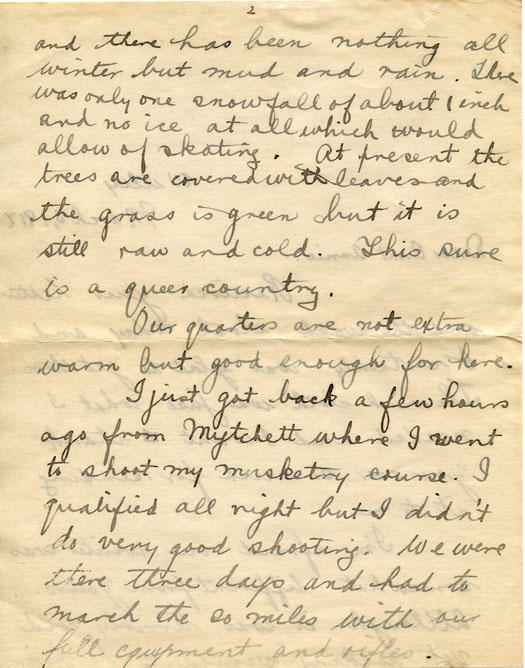 2
and there has been nothing all
winter but mud and rain. There
was only one snowfall of about 1 inch
and no ice at all which would
allow of skating. At present the
trees are covered with leaves and
the grass is green but it is
still raw and cold. This sure
is a queer country.
Our quarters are not extra
warm but good enough for here.
I just got back a few hours
ago from Mytchett where I went
to shoot my musketry course. I
qualified all right but I didn't
do very good shooting. We were
there three days and had to
march the 20 miles with our
full equipment and rifles.